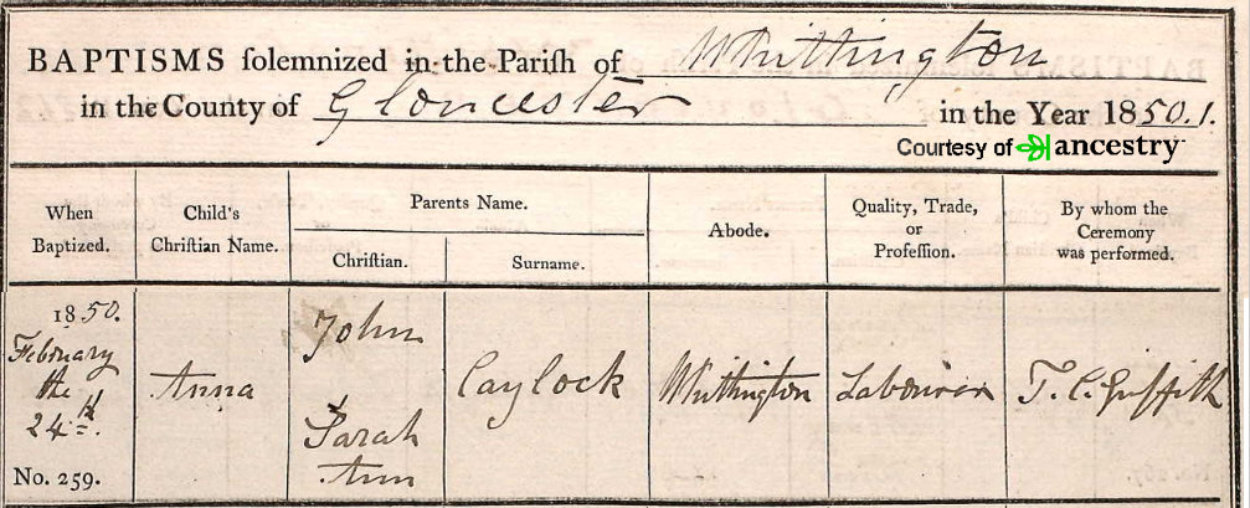 BAPTISMS solemnized in the Parish of Whittington
in the County of Gloucester in the Year 1850.1.
Courtesy of ancestry
When Baptized.
Child's Christian Name.
Parents Name.
Christian.
Surname.
Abode.
Quality, Trade, or Profession.
By whom the Ceremony was performed.
1850.
February
the
24th.
No. 259.
Anna
John
&
Sarah
Ann
Caylock
Whittington
Labourer
T. C. Griffith